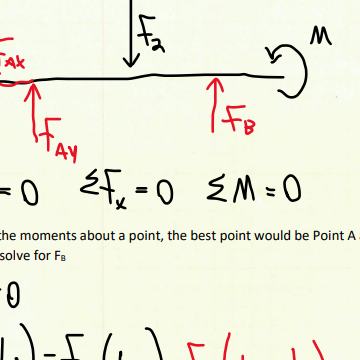 F₂
M
F_AX
F_AY
F_B
= 0 ΣF_x = 0 ΣM = 0
the moments about a point, the best point would be Point A
solve for F_B
= 0